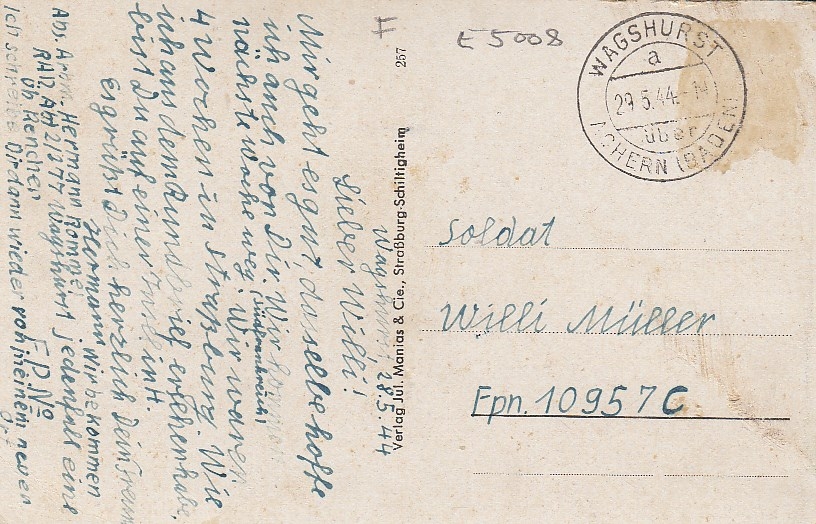 Wagshurst, 28.5.44
Lieber Willi!
Mir geht es gut, dasselbe hoffe
ich auch von Dir. Wir kommen
nächste Woche weg. Wir waren
Südfrankreich!
4 Wochen in Straßburg. Wie
ich aus dem Rundbrief ersehen habe,
bist Du auf einer Insel
Es grüßt Dich herzlich Dein Freund
Hermann. Wir bekommen
jedenfalls eine
F.P.No
Ich schreibe Dir dann wieder von meinem neuen
Ort
Abs. Arm. Hermann
RAD. Abt 2/277 Wagshurst
üb Renchen
Verlag Jul. Manias & Cie., Straßburg-Schiltigheim
257
F
E 5008
WAGSHURST
a
29.5.44
über
ACHERN (BADEN)
Soldat
Willi Müller
Fpn. 10957C